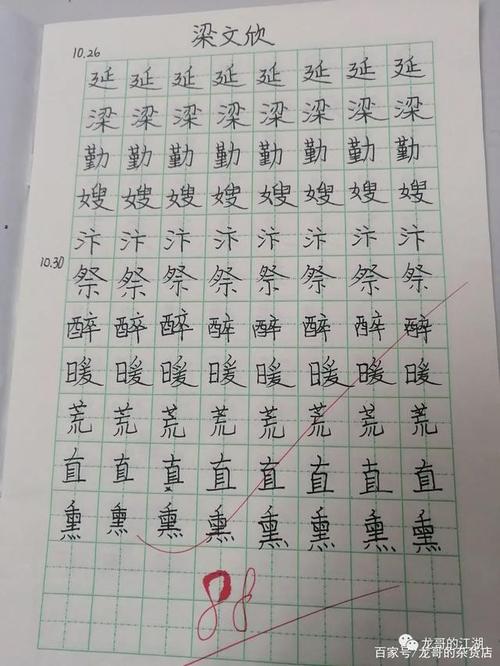 梁文欣
10.26
延延延延延延延延
梁梁梁梁梁梁梁梁
勤勤勤勤勤勤勤勤
嫂嫂嫂嫂嫂嫂嫂嫂
汴汴汴汴汴汴汴汴
10.30
祭祭祭祭祭祭祭祭
醉醉醉醉醉醉醉醉
暖暖暖暖暖暖暖暖
荒荒荒荒荒荒荒荒
直直直直直直直直
熏熏熏熏熏熏熏熏
88
龙哥的江湖
百家号/龙哥的杂货店